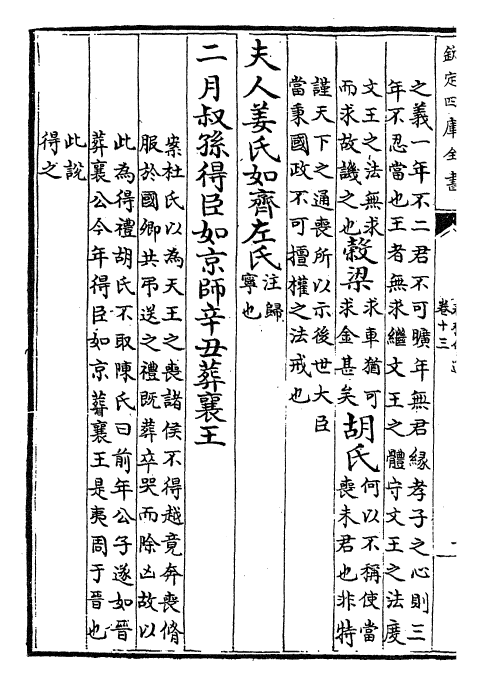 欽定四庫全書
卷十三
之義一年不二君不可曠年無君緣孝子之心則三
年不忍當也王者無求繼文王之體守文王之法度
文王之法無求
而求故譏之也穀梁求車猶可
求金甚矣胡氏何以不稱使當
喪未君也非特
謹天下之通喪所以示後世大臣
當秉國政不可擅權之法戒也
夫人姜氏如齊左氏注歸
寧也
二月叔孫得臣如京師辛丑葬襄王
案杜氏以為天王之喪諸侯不得越竟奔喪脩
服於國卿共弔送之禮既葬卒哭而除凶故以
此為得禮胡氏不取陳氏曰前年公子遂如晉
葬襄公今年得臣如京葬襄王是夷周于晉也
此說
得之